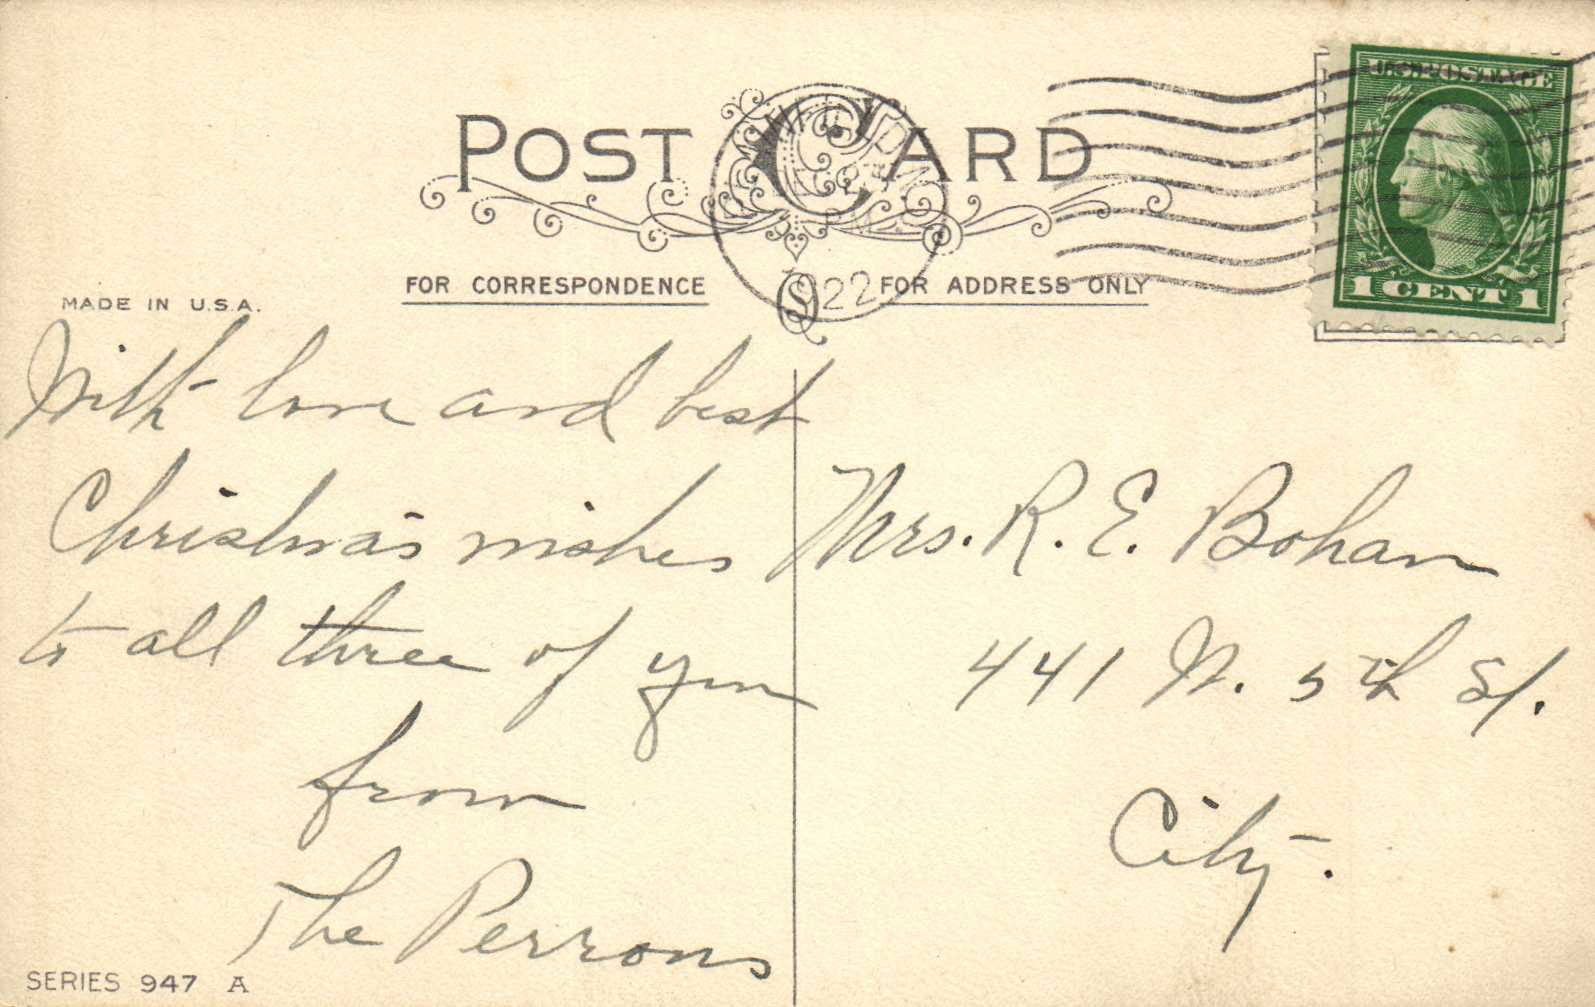 POST CARD
U.S. POSTAGE
1 CENT 1
PM
1922
FOR CORRESPONDENCE
FOR ADDRESS ONLY
MADE IN U.S.A.
With love and best
Christmas wishes
to all three of you
from
The Perrons
Mrs. R. E. Bohan
441 N. 5th St.
City.
SERIES 947 A